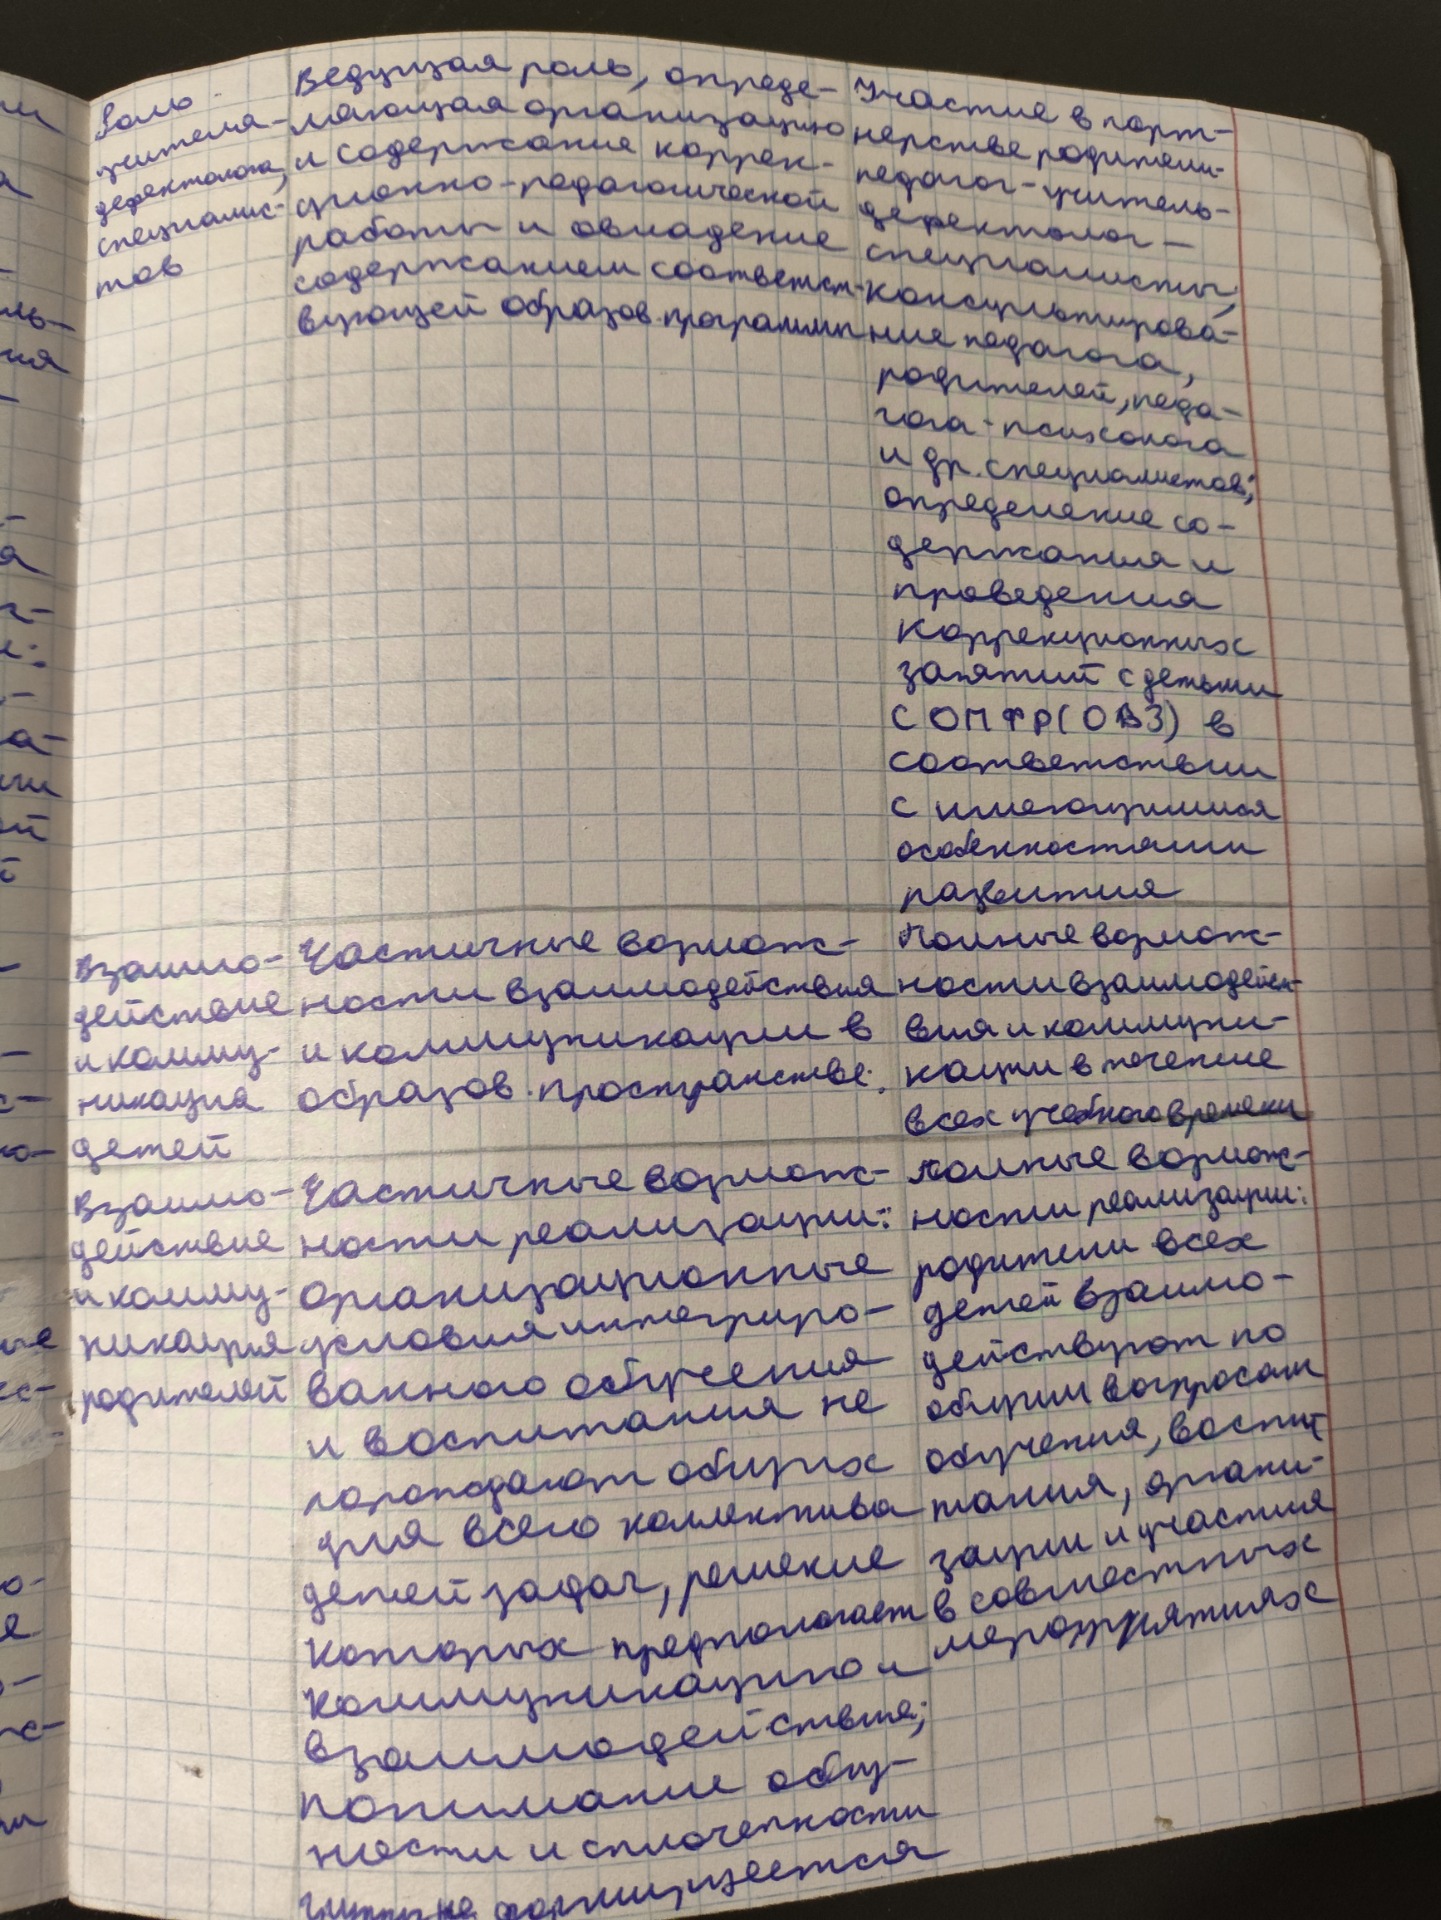 Роль
учителя-
дефектолога,
специалис-
тов
Ведущая роль, опреде-
ляющая организацию
и содержание коррек-
ционно-педагогической
работы и овладение
содержанием соответст-
вующей образов. программы
Участие в парт-
нерстве родители-
педагог-учитель-
дефектолог-
специалисты,
консультирова-
ние педагога,
родителей, педа-
гога-психолога
и др. специалистов;
определение со-
держания и
проведения
коррекционных
занятий с детьми
с ОПФР(ОВЗ) в
соответствии
с имеющимися
особенностями
развития
Взаимо-
действие
и комму-
никация
детей
Частичные возмож-
ности взаимодействия
и коммуникации в
образов. пространстве.
Полные возмож-
ности взаимодейст-
вия и коммуни-
кации в течение
всех учебного времени
Взаимо-
действие
и комму-
никация
родителей
Частичные возмож-
ности реализации:
организационные
условия интегриро-
ванного обучения
и воспитания не
порождают общих
для всего коллектива
детей задач, решение
которых предполагает
коммуникацию и
взаимодействие;
понимание общ-
ности и сплоченности
группы не формируется
Полные возмож-
ности реализации:
родители всех
детей взаимо-
действуют по
общим вопросам
обучения, воспи-
тания, органи-
зации и участия
в совместных
мероприятиях